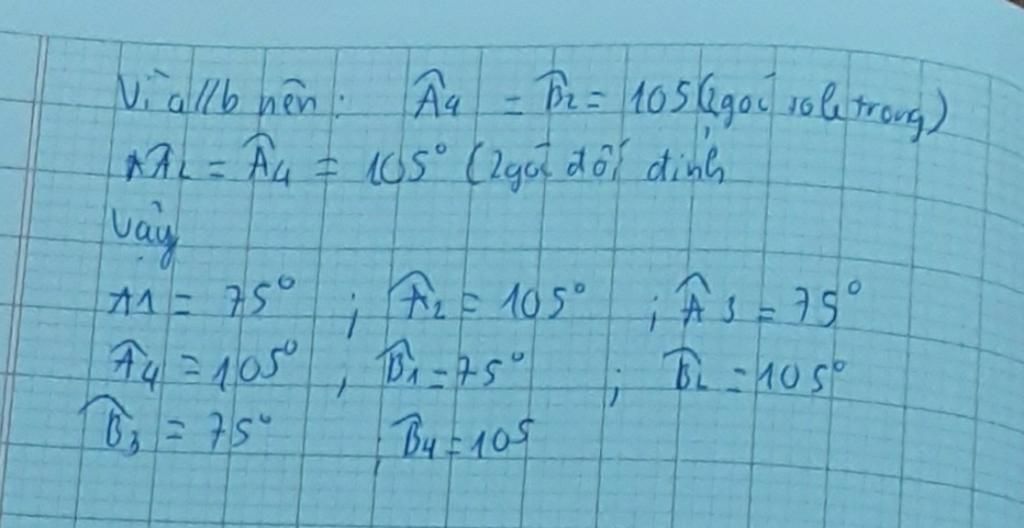 Vì a//b nên: Â4 = B̂2 = 105 (2góc sole trong)
Â2 = Â4 = 105° (2góc đối đỉnh
Vậy
A1 = 75° ; Â2 = 105° ; Â3 = 75°
Â4 = 105° , B̂1 = 75° ; B̂2 = 105°
B̂3 = 75° , B̂4 = 105